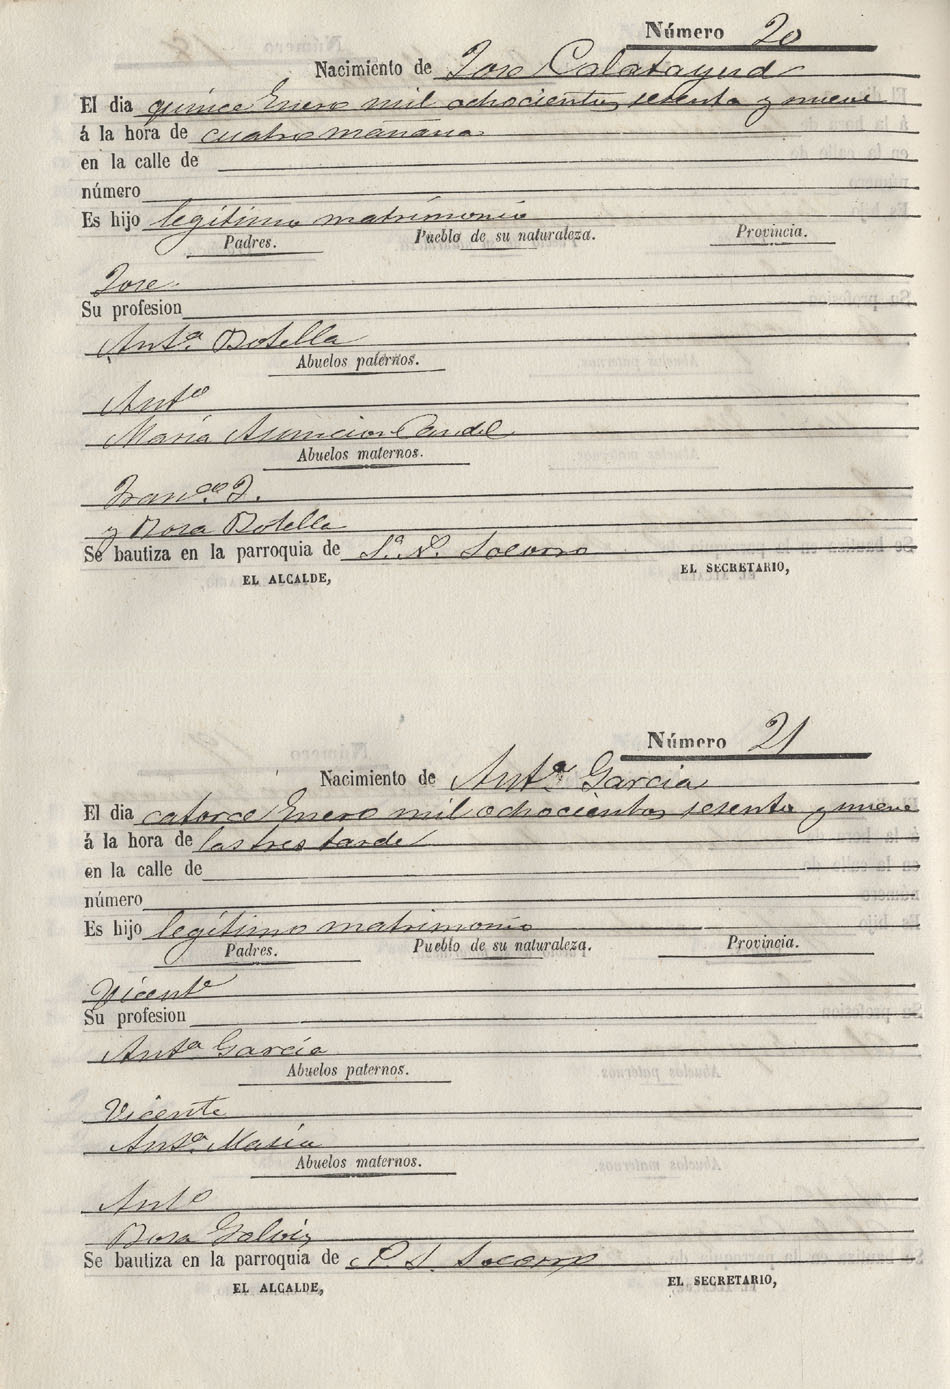 Número 20
Nacimiento de Jose Calatayud
El dia quince Enero mil ochocientos sesenta y nueve
á la hora de cuatro mañana
en la calle de
número
Es hijo legítimo matrimonio
Padres. Pueblo de su naturaleza. Provincia.
Jose
Su profesion
Antª Botella
Abuelos paternos.
Antº
María Asuncion Candel
Abuelos maternos.
Franco J.
y Rosa Botella
Se bautiza en la parroquia de Sª Nª Socorro
EL ALCALDE, EL SECRETARIO,
Número 21
Nacimiento de Antº Garcia
El dia catorce Enero mil ochocientos sesenta y nueve
á la hora de las tres tarde
en la calle de
número
Es hijo legítimo matrimonio
Padres. Pueblo de su naturaleza. Provincia.
Vicente
Su profesion
Antª García
Abuelos paternos.
Vicente
Antª María
Abuelos maternos.
Antº
Rosa Galvis
Se bautiza en la parroquia de Socorro
EL ALCALDE, EL SECRETARIO,